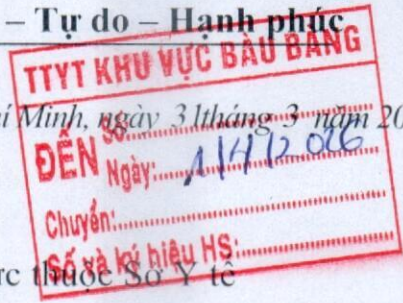 – Tự do – Hạnh phúc
TTYT KHU VỰC BÀU BÀNG
hí Minh, ngày 31tháng 3 năm 20
ĐẾN
Số:
Ngày: 1/4/2026
Chuyển:
Số và ký hiệu HS:
rc thuộc Sở Y tế